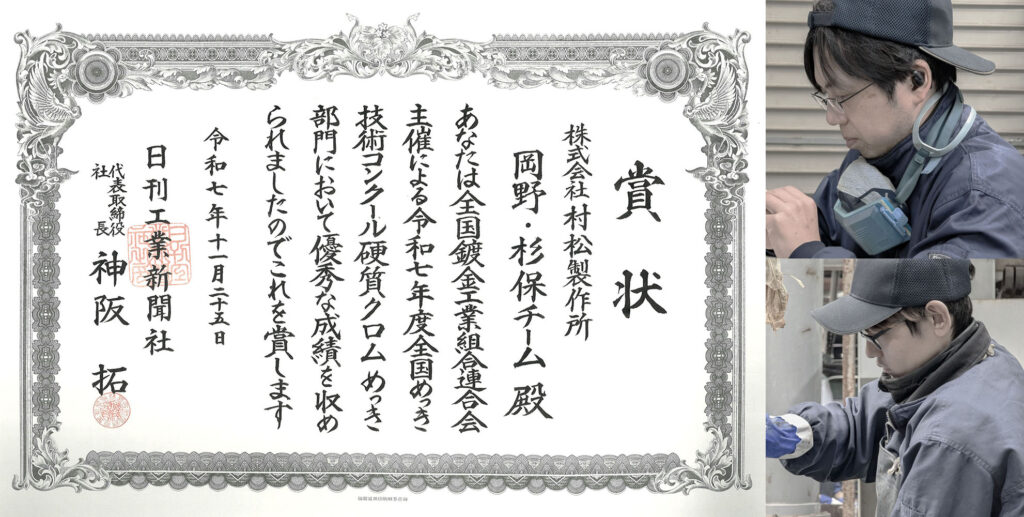 賞状
株式会社 村松製作所
岡野・杉保チーム 殿
あなたは全国鍍金工業組合連合会
主催による令和七年度全国めっき
技術コンクール硬質クロムめっき
部門において優秀な成績を収め
られましたのでこれを賞します
令和七年十一月二十五日
日刊工業新聞社
代表取締役
社長
神阪 拓